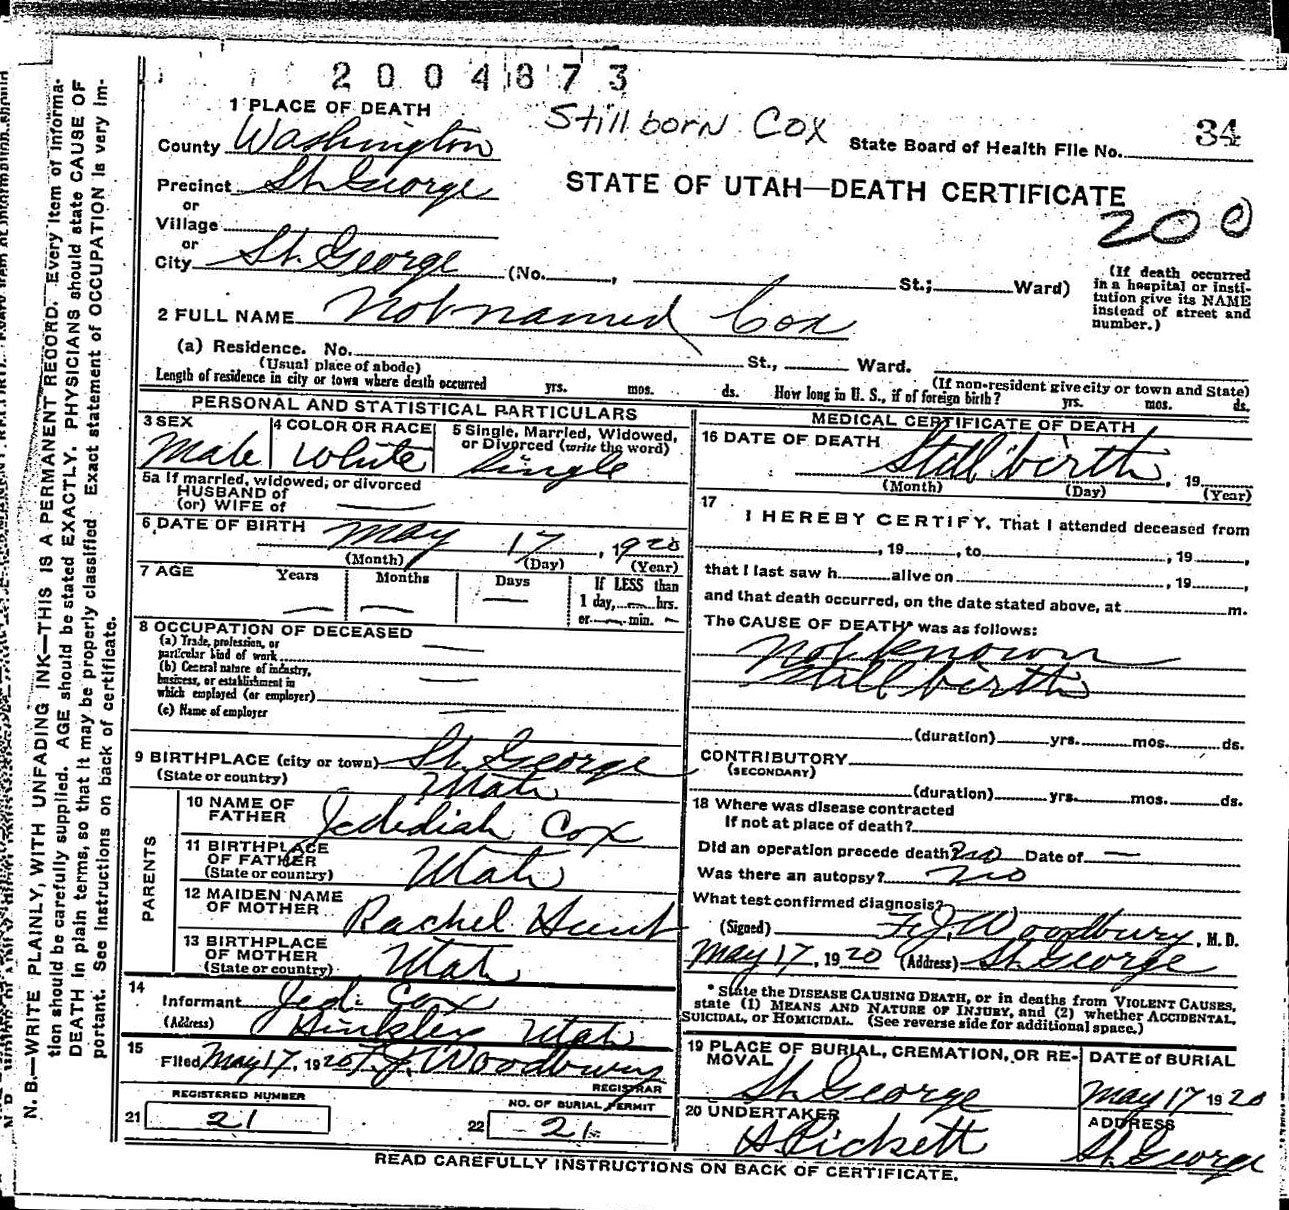 2004873
1 PLACE OF DEATH
Stillborn Cox
State Board of Health File No. 34
County Washington
Precinct St. George
STATE OF UTAH—DEATH CERTIFICATE
200
or
Village
or
City St. George (No. , St.; Ward)
(If death occurred in a hospital or institution give its NAME instead of street and number.)
2 FULL NAME Not named Cox
(a) Residence. No. St., Ward.
(Usual place of abode) (If non-resident give city or town and State)
Length of residence in city or town where death occurred yrs. mos. ds. How long in U. S., if of foreign birth? yrs. mos. ds.
PERSONAL AND STATISTICAL PARTICULARS
3 SEX
Male
4 COLOR OR RACE
White
5 Single, Married, Widowed, or Divorced (write the word)
Single
5a If married, widowed, or divorced
HUSBAND of
(or) WIFE of —
6 DATE OF BIRTH May 17, 1920
(Month) (Day) (Year)
7 AGE Years Months Days If LESS than
1 day, — hrs.
or — min. —
— — —
8 OCCUPATION OF DECEASED
(a) Trade, profession, or
particular kind of work —
(b) General nature of industry,
business, or establishment in
which employed (or employer) —
(c) Name of employer —
9 BIRTHPLACE (city or town) St. George
(State or country) Utah
PARENTS
10 NAME OF FATHER Jedidiah Cox
11 BIRTHPLACE OF FATHER
(State or country) Utah
12 MAIDEN NAME OF MOTHER Rachel Hunt
13 BIRTHPLACE OF MOTHER
(State or country) Utah
14
Informant Jedi Cox
(Address) Hinkley Utah
15
Filed May 17, 1920 F. J. Woodbury
REGISTRAR
REGISTERED NUMBER
21 21
NO. OF BURIAL PERMIT
22 21
MEDICAL CERTIFICATE OF DEATH
16 DATE OF DEATH Still birth, 19
(Month) (Day) (Year)
17
I HEREBY CERTIFY, That I attended deceased from
, 19 , to , 19 ,
that I last saw h alive on , 19 ,
and that death occurred, on the date stated above, at m.
The CAUSE OF DEATH* was as follows:
Not known
Still birth
(duration) yrs. mos. ds.
CONTRIBUTORY
(SECONDARY)
(duration) yrs. mos. ds.
18 Where was disease contracted
If not at place of death?
Did an operation precede death? no Date of —
Was there an autopsy? no
What test confirmed diagnosis?
(Signed) F. J. Woodbury, M. D.
May 17, 1920 (Address) St. George
* State the DISEASE CAUSING DEATH, or in deaths from VIOLENT CAUSES,
state (1) MEANS AND NATURE OF INJURY, and (2) whether ACCIDENTAL,
SUICIDAL, or HOMICIDAL. (See reverse side for additional space.)
19 PLACE OF BURIAL, CREMATION, OR REMOVAL
St. George
DATE of BURIAL
May 17 1920
20 UNDERTAKER
A Pickett
ADDRESS
St. George
READ CAREFULLY INSTRUCTIONS ON BACK OF CERTIFICATE.
N. B.—WRITE PLAINLY, WITH UNFADING INK—THIS IS A PERMANENT RECORD. Every item of informa-
tion should be carefully supplied. AGE should be stated EXACTLY. PHYSICIANS should state CAUSE OF
DEATH in plain terms, so that it may be properly classified. Exact statement of OCCUPATION is very im-
portant. See instructions on back of certificate.